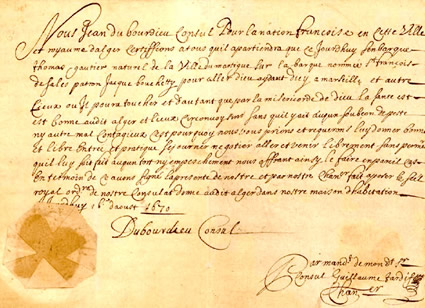 Nous Jean du bourdieu Consul Pour la nation francoise en Cette Ville
et royaume dalger Certiffions atous quil apartiendra que ce Jourdhuy sen barque
thomas gautier naturel de la Ville du martigue sur la barque nommée St françois
de sales patron Jaque pour aller a marseille et autre
Lieux ou Jl poura toucher et dautant que par la misericorde de dieu la sante est
est bonne audit alger et Lieux sans quil y ait aucun soubson de peste
ny autre mal Contagieux Cest pourquoy nous vous prions et requerons luy donner bonne
et libre Entrée et pratique sejourner negotier aller et venir librement sans permettre
quil luy soit fait aucun tort ny empeschement nous offrant ainsy le faire en pareil cas
En temoin de ce avons signé la presente de nostre et par nostre Chanr fait aposer le seel
royal ordre de nostre Consulat donné audit alger dans nostre maison dhabitation
Jourdhuy aoust 1670
Dubourdieu Consul
Par mandt de mondt sr
Consul Guilhaume tardif
Chaner